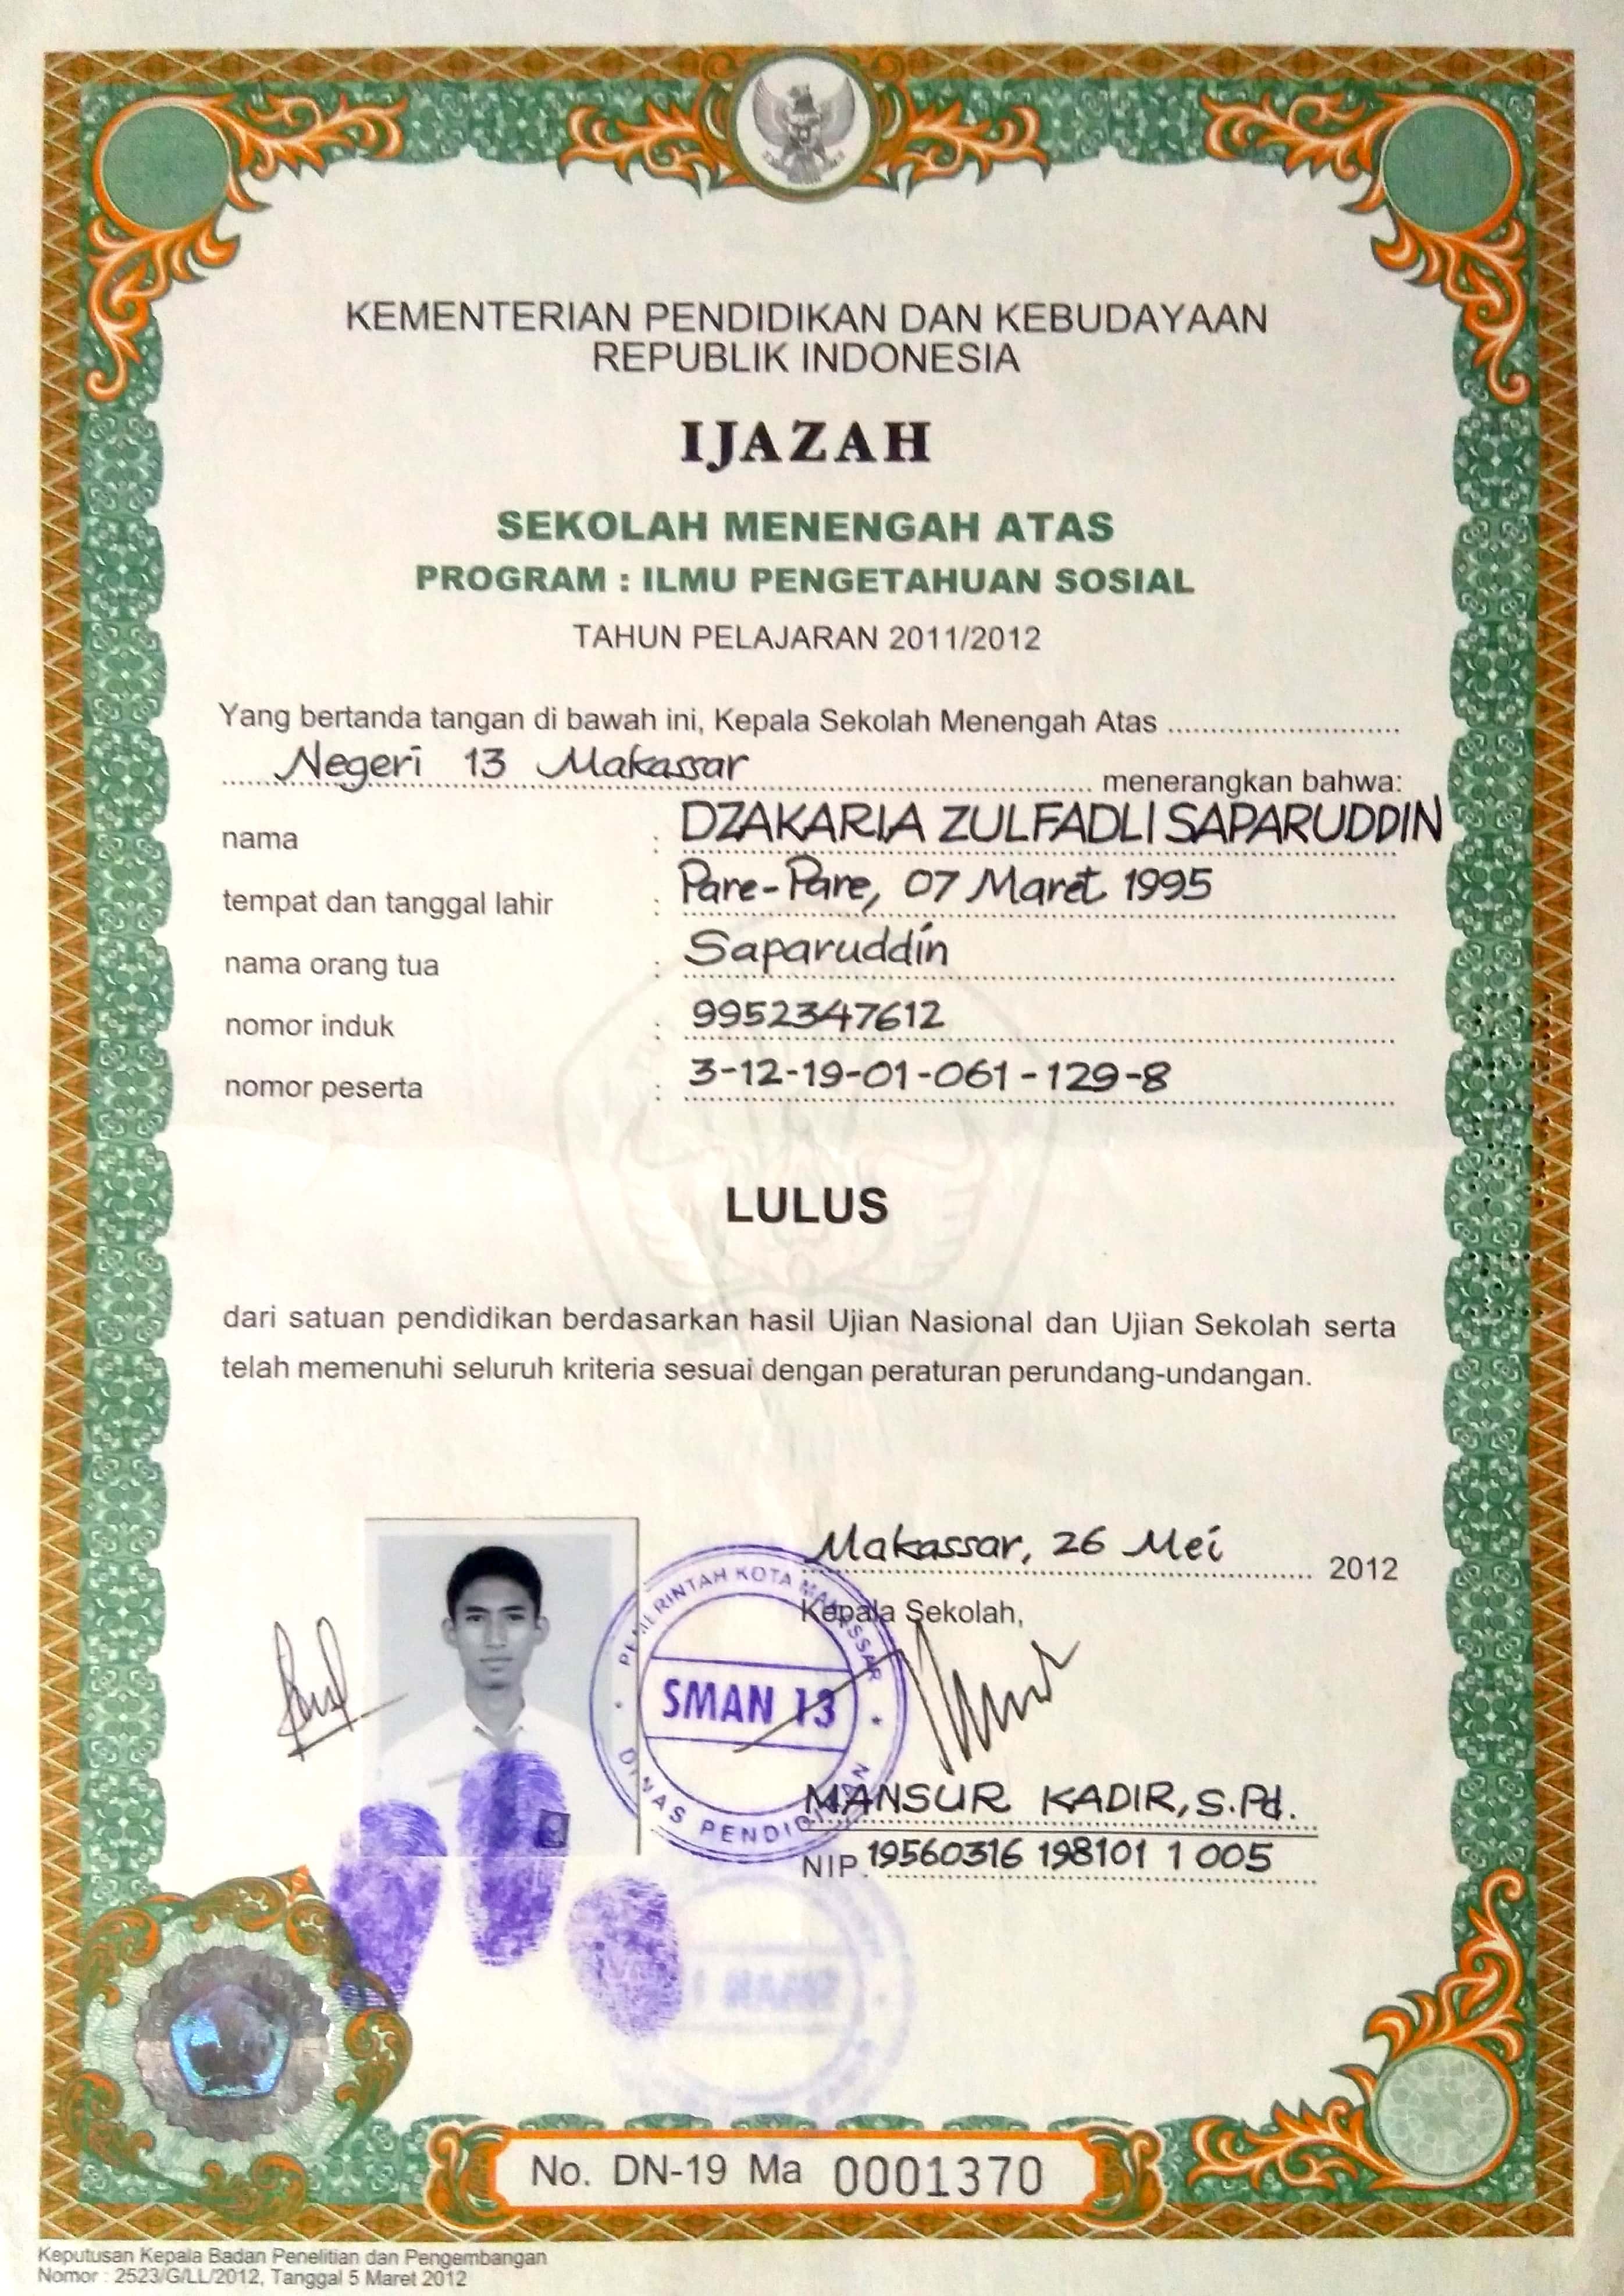 KEMENTERIAN PENDIDIKAN DAN KEBUDAYAAN
REPUBLIK INDONESIA
IJAZAH
SEKOLAH MENENGAH ATAS
PROGRAM : ILMU PENGETAHUAN SOSIAL
TAHUN PELAJARAN 2011/2012
Yang bertanda tangan di bawah ini, Kepala Sekolah Menengah Atas
Negeri 13 Makassar menerangkan bahwa:
nama : DZAKARIA ZULFADLI SAPARUDDIN
tempat dan tanggal lahir : Pare-Pare, 07 Maret 1995
nama orang tua : Saparuddin
nomor induk : 9952347612
nomor peserta : 3-12-19-01-061-129-8
LULUS
dari satuan pendidikan berdasarkan hasil Ujian Nasional dan Ujian Sekolah serta
telah memenuhi seluruh kriteria sesuai dengan peraturan perundang-undangan.
Makassar, 26 Mei 2012
Kepala Sekolah,
PEMERINTAH KOTA MAKASSAR
SMAN 13
DINAS PENDIDIKAN
MANSUR KADIR, S.Pd.
NIP. 19560316 198101 1 005
No. DN-19 Ma 0001370
Keputusan Kepala Badan Penelitian dan Pengembangan
Nomor : 2523/G/LL/2012, Tanggal 5 Maret 2012